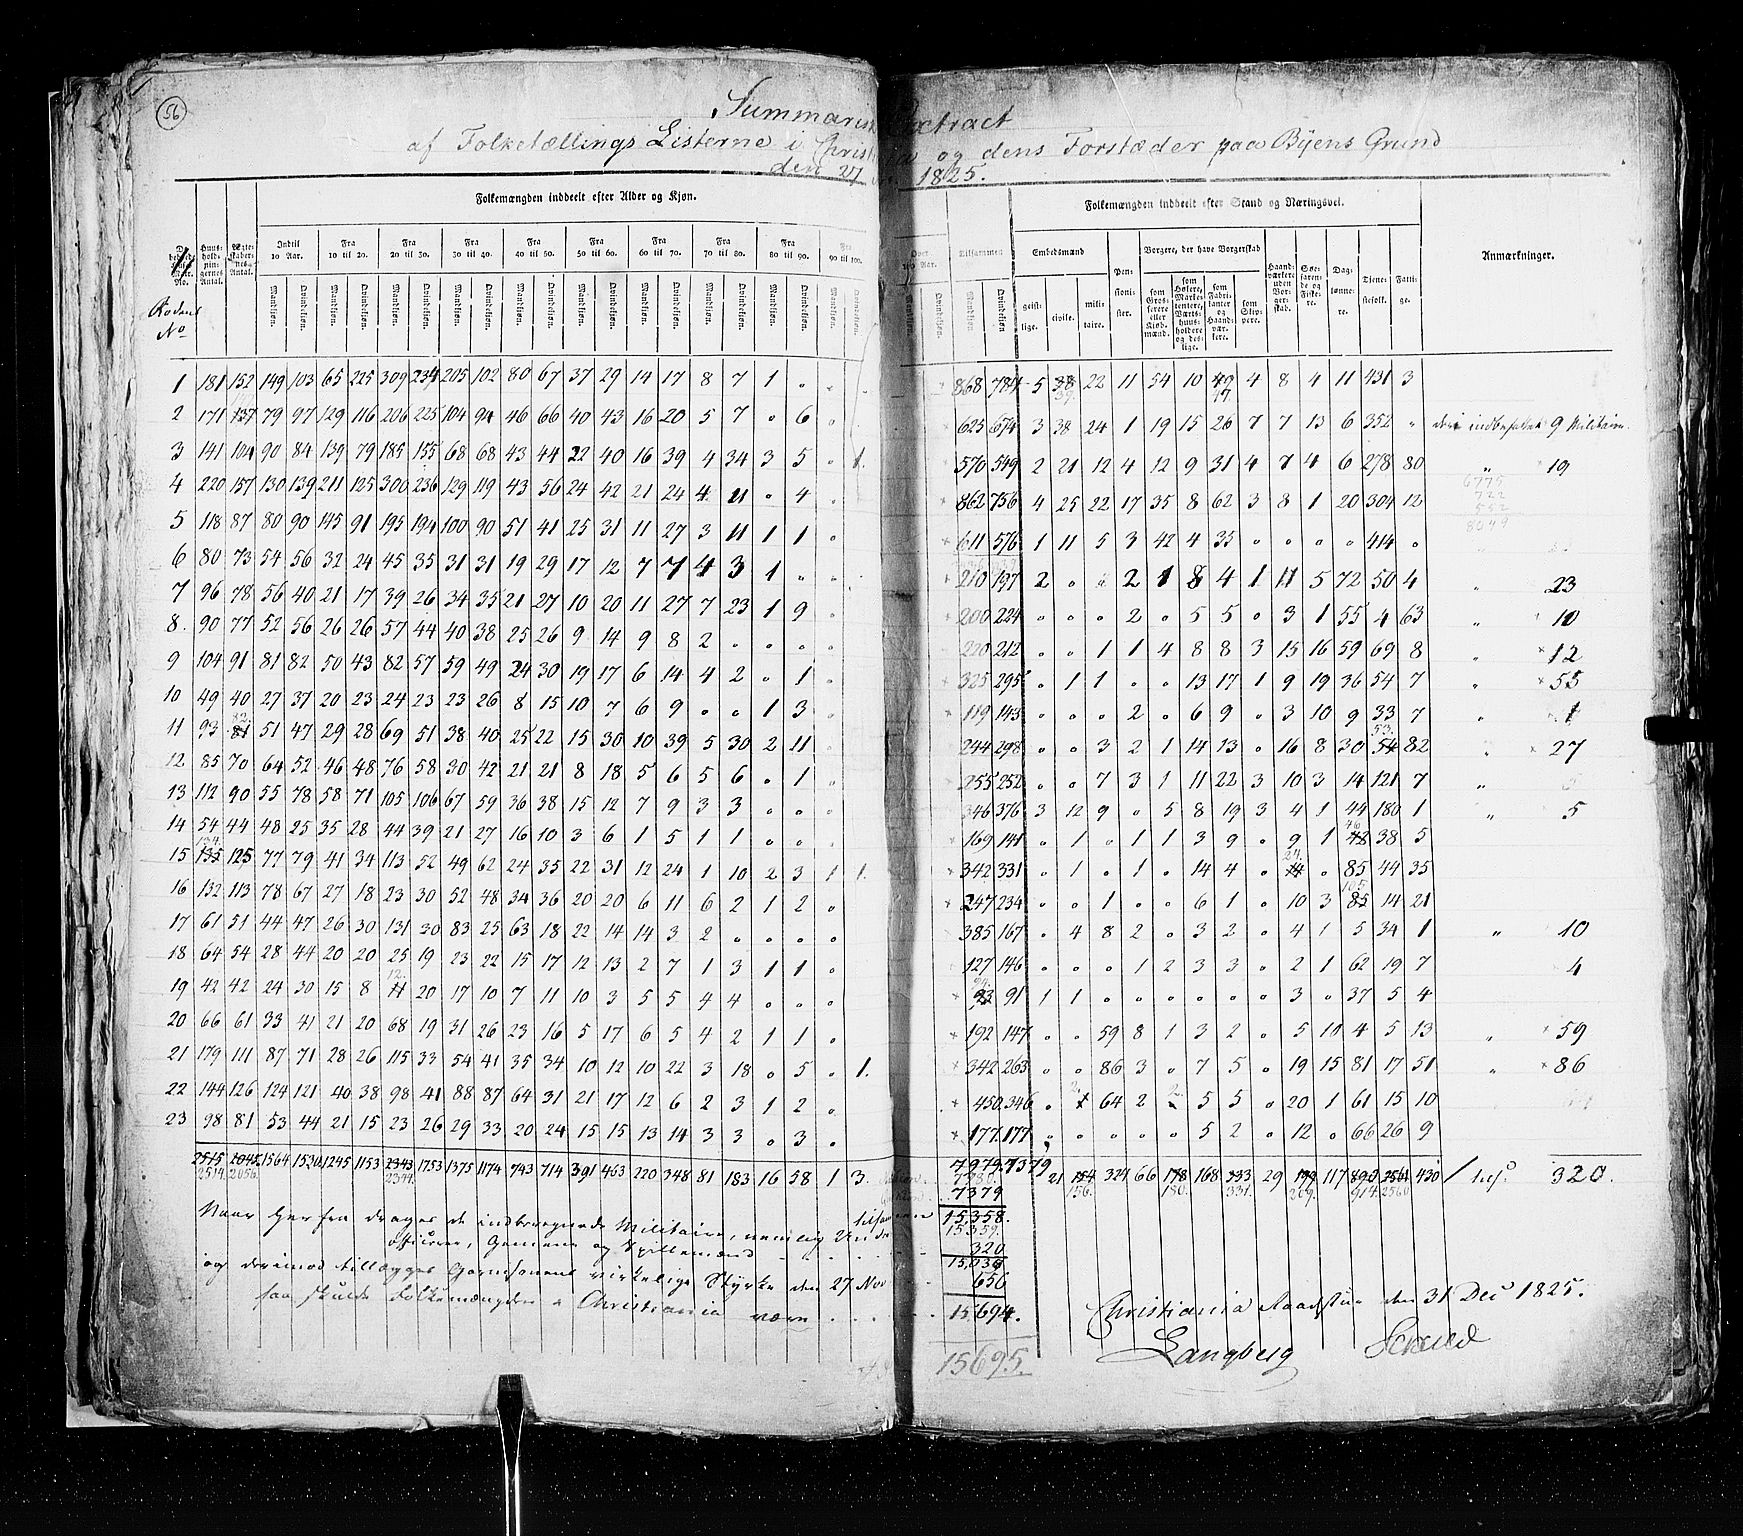 56
Summarisk Extract
af Folketællings Listerne i Christiania og dens Forstæder paa Byens Grund
den 27 1825.
Folkemængden inddeelt efter Alder og Kjøn.
Folkemængden inddeelt efter Stand og Næringsvei.
Huusholdningernes Antal. Indtil 10 Aar. Fra 10 til 20. Fra 20 til 30. Fra 30 til 40. Fra 40 til 50. Fra 50 til 60. Fra 60 til 70. Fra 70 til 80. Fra 80 til 90. Fra 90 til 100. Over 100 Aar. Tilsammen Embedsmænd geistlige. civile. militaire. Pensionister. Borgere, der have Borgerskab som Grosserere eller Kjøbmænd. som Høkere, Marketentere, Værtshuusholdere og deslige. som Fabrikanter og Haandværkere. som Skippere. Haandværkere uden Borgerskab. Søefarende og Fiskere. Daglønnere. Tjenestefolk. Fattige. Anmærkninger.
Mandkjøn. Qvindekjøn.
Rodens No
1 181 152 149 103 65 225 309 234 205 102 80 67 37 29 14 17 8 7 1 " 868 784 5 38 39. 22 11 54 10 49 47. 4 8 4 11 431 3
2 171 137 79 97 129 116 206 225 104 94 46 66 40 43 16 20 5 7 " 6 625 674 3 38 24 1 19 15 26 7 7 13 6 352 " 9 Militaire.
3 141 104 90 84 139 79 185 155 68 68 43 44 22 40 16 39 4 34 3 5 " 1. 570 549 2 21 12 4 12 9 31 4 7 4 6 278 80 " 19
4 220 157 130 139 211 125 300 236 129 119 43 56 24 42 21 24 4 11 " 4 862 756 4 25 22 17 35 8 62 3 8 1 20 304 12
6775
722
552
8049
5 118 87 80 90 145 91 195 194 100 90 51 41 25 31 11 27 3 11 1 1 " 611 576 1 11 5 3 42 4 35 " " " " 414 "
6 80 73 54 56 32 24 45 35 31 31 19 29 17 12 7 7 4 3 1 " " 210 197 2 " " 2 1 8 4 1 11 5 72 50 4 " 23
7 96 78 56 40 21 17 39 26 34 35 21 27 10 20 11 27 7 23 1 9 " 200 224 " " " 2 " 5 5 " 3 1 55 4 63 " 10
8. 90 77 52 56 26 26 57 44 40 38 25 26 9 14 9 8 2 " " " " 220 212 " " 1 1 4 8 8 3 15 16 59 69 8 " 12
9 104 91 81 82 50 43 82 57 59 49 24 30 19 17 6 14 4 2 " 1 " 325 295 " 1 1 " " 13 17 1 9 19 36 54 7 " 55
10 49 40 27 37 20 23 24 23 23 26 8 15 10 7 6 9 " " 1 3 " 119 143 " " " 2 " 6 9 " 3 10 9 33 7 " 1
11 93 82. 81 51 47 29 28 69 51 38 40 25 22 15 30 10 39 5 30 2 11 " 244 298 " " 3 2 1 14 13 " 16 8 30 53. 54 82 " 27
12 85 70 64 52 46 48 76 58 30 42 21 21 8 18 5 6 5 6 " 1 " 255 252 " " 7 3 1 11 22 3 10 3 14 121 7 "
13 112 90 55 78 58 71 105 106 67 59 36 38 15 12 7 9 3 3 " " " 346 376 3 12 9 " 5 8 19 3 4 1 44 180 1 " 5
14 54 44 48 25 35 28 44 39 21 27 16 10 3 6 1 5 1 1 " " " 169 141 " 1 " 1 1 3 9 " 9 1 46 42 38 5
15 134. 135 125 77 79 41 34 113 52 49 62 24 35 22 31 12 24 1 10 2 3 1 1. 342 331 " 1 " 1 " 14 4 " 24. 14 " 85 44 35
16 132 113 78 67 27 18 23 30 52 48 34 36 20 20 6 11 6 2 1 2 " 247 234 " " 1 " " 6 1 " 10 3 105 85 14 21
17 61 51 44 47 26 30 131 30 83 25 63 18 22 14 14 3 2 " " " " 385 167 " 4 8 2 " 3 2 " 4 1 5 34 1 " 10
18 64 54 28 44 20 20 25 19 23 22 15 17 12 13 2 7 1 3 1 1 " 127 146 " " " 1 2 3 3 " 2 1 62 19 7 4
19 42 42 24 30 15 8 12. 11 20 17 10 7 11 10 3 5 5 4 4 " " " 94. 93 91 1 1 " " " " " " 3 " 37 5 4
20 66 61 33 41 21 20 68 19 31 26 23 16 5 17 6 5 4 2 1 1 " 192 147 " " 59 8 1 3 2 " 5 11 4 5 13 " 59
21 179 111 87 71 28 26 115 33 54 41 35 34 10 12 10 22 3 18 " 5 " 1. 342 263 " " 86 3 " 7 5 " 19 15 81 17 51 " 86
22 144 126 124 121 40 38 98 41 88 87 64 31 21 17 12 6 2 3 1 2 " 450 346 " 2. 1 64 2 2 5 5 " 20 1 61 15 10
23 98 81 53 44 21 15 23 26 29 33 20 24 15 15 13 14 3 3 " 3 " 177 177 " " " " " 5 2 " 12 " 66 26 9
2515 2045 1564 1530 1245 1153 2343 1753 1375 1174 743 714 391 463 220 348 81 183 16 58 1 3. 7979 7379 21 154 324 66 178 168 333 29 199 117 893 2561 430 320.
2514. 2056. 2344. 7980. 156. 180. 331. 209. 914. 2560
7379
Naar herfra drages de indberegnede Militaire, nemlig Under 15,358.
officerer, Gemene og Spillemænd 15,359.
320
15,038
og derimod tillægges Garnisonens virkelige Styrke den 27 Nov 656
saa skulde Folkemængden i Christiania være 15,694.
15695.
Christiania Raadstue den 31 Dec 1825.
Langberg